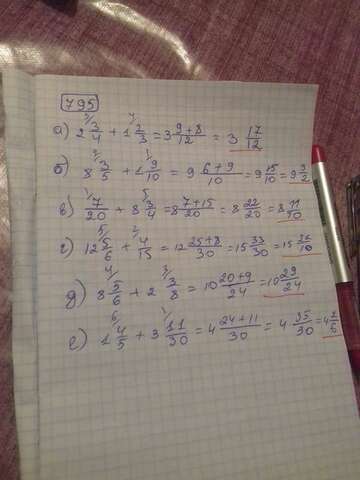 795
а) 2 3/4 + 1 2/3 = 3 9+8/12 = 3 17/12
б) 8 3/5 + 1 9/10 = 9 6+9/10 = 9 15/10 = 9 9/2
в) 7/20 + 8 3/4 = 8 7+15/20 = 8 22/20 = 8 11/10
г) 12 5/6 + 4/15 = 12 25+8/30 = 15 33/30 = 15
д) 8 5/6 + 2 3/8 = 10 20+9/24 = 10 29/24
е) 1 4/5 + 3 11/30 = 4 24+11/30 = 4 35/30 =